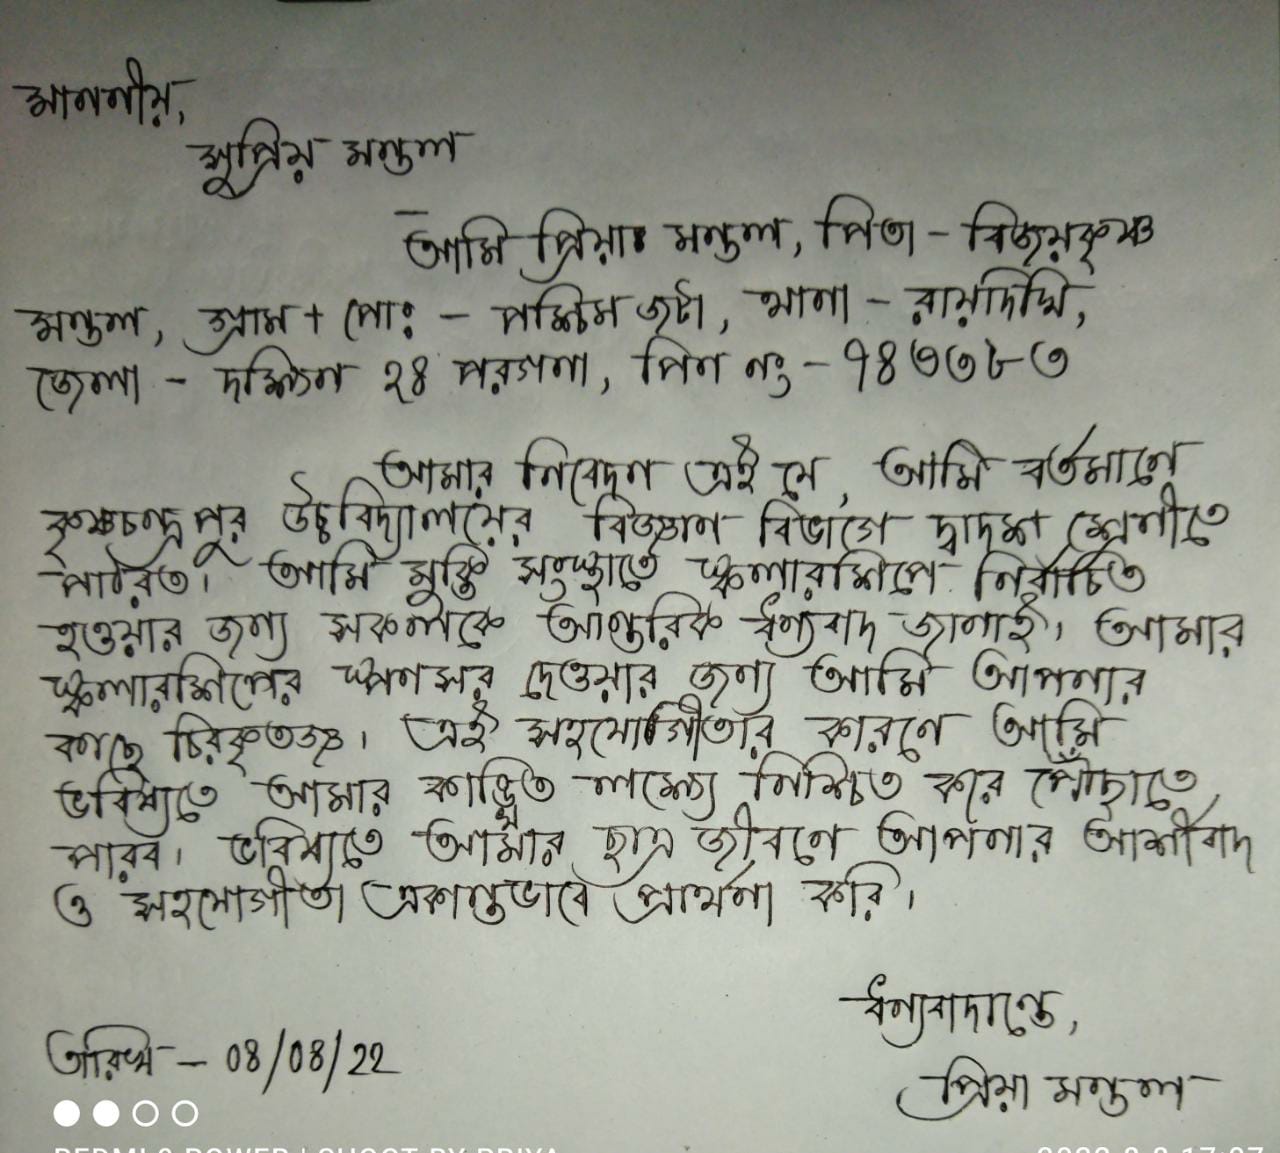 মাননীয়,
সুপ্রিয় মন্ডল
আমি প্রিয়া মন্ডল, পিতা - বিজয়কৃষ্ণ
মন্ডল, গ্রাম + পোঃ - পশ্চিম জটা, থানা - রায়দিঘি,
জেলা - দক্ষিন ২৪ পরগনা, পিন নং - ৭৪৩৩৮৩
আমার নিবেদন এই যে, আমি বর্তমানে
কৃষ্ণচন্দ্রপুর উচ্চবিদ্যালয়ের বিজ্ঞান বিভাগে দ্বাদশ শ্রেনীতে
পাঠরত। আমি মুক্তি সংস্থাতে স্কলারশিপে নির্বাচিত
হওয়ার জন্য সকলকে আন্তরিক ধন্যবাদ জানাই। আমার
স্কলারশিপের স্পনসর দেওয়ার জন্য আমি আপনার
কাছে চিরকৃতজ্ঞ। এই সহযোগীতার কারনে আমি
ভবিষ্যতে আমার কাঙ্খিত লক্ষ্যে নিশ্চিত করে পৌঁছাতে
পারব। ভবিষ্যতে আমার ছাত্র জীবনে আপনার আশীর্বাদ
ও সহযোগীতা একান্তভাবে প্রার্থনা করি।
ধন্যবাদান্তে,
তারিখ - 08/08/22
প্রিয়া মন্ডল